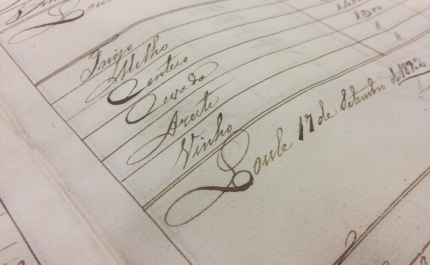 Trigo
Milho
Centeio
Cevada
Azeite
Vinho
Loulé 17 de Setembro de 1872